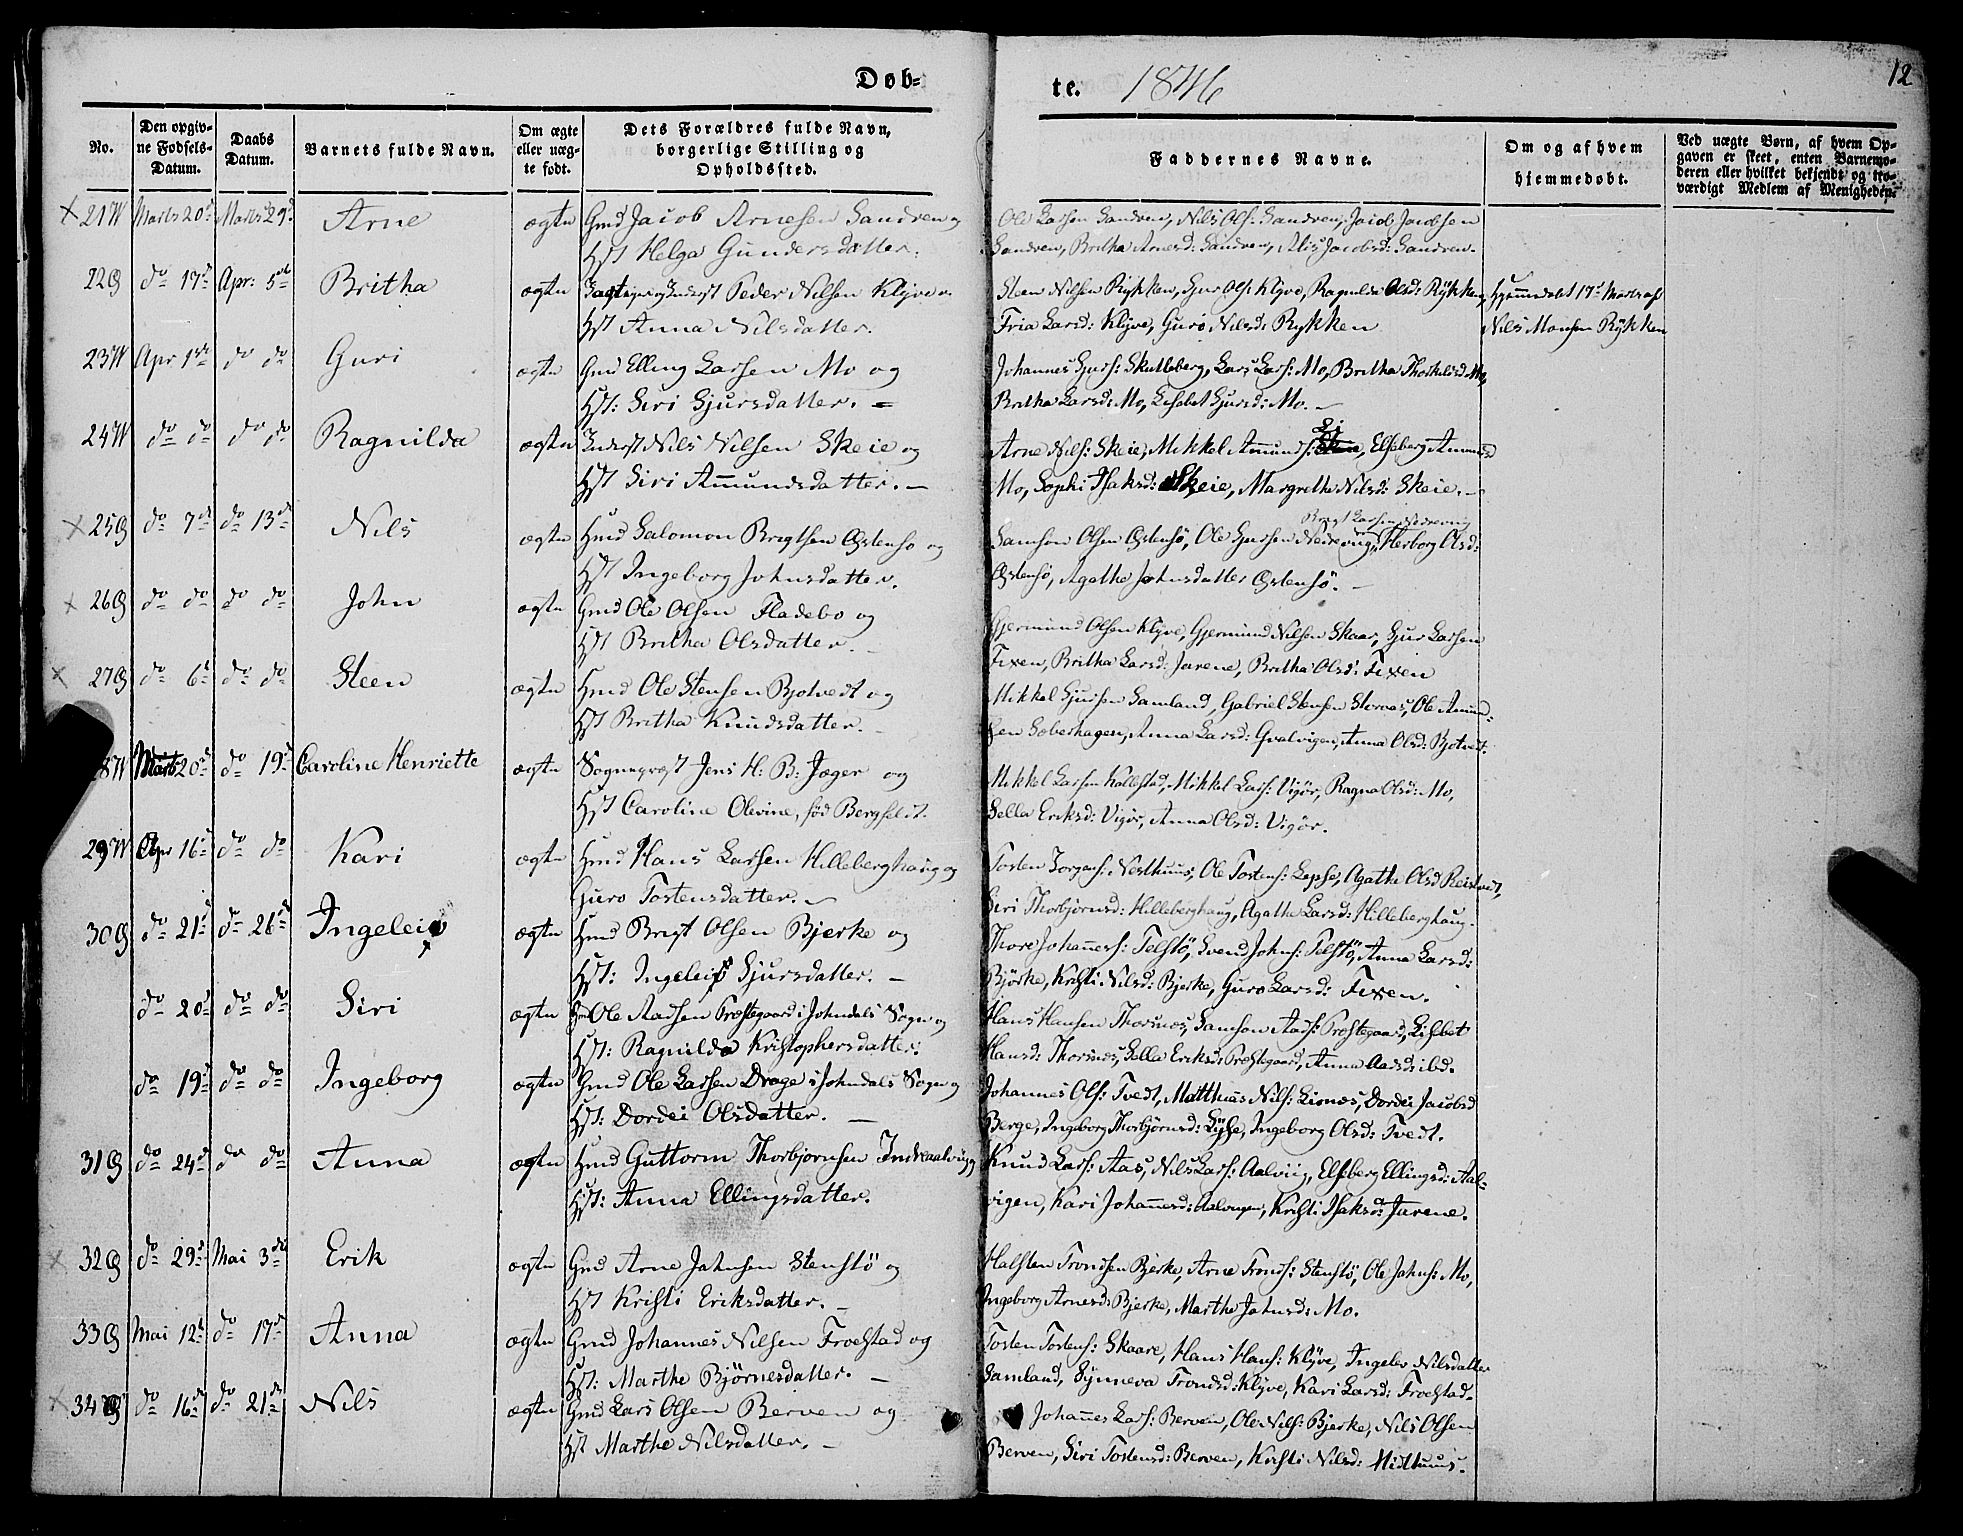 Døb-
te. 1846
12
No.
Den opgiv-
ne Fødsels-
Datum.
Daabs
Datum.
Barnets fulde Navn.
Om ægte
eller uæg-
te født.
Dets Forældres fulde Navn,
borgerlige Stilling og
Opholdssted.
Faddernes Navne.
Om og af hvem
hjemmedøbt.
Ved uægte Børn, af hvem Op-
gaven er skeet, enten Barnemo-
deren eller hvilket bekjendt og tro-
værdigt Medlem af Menigheden.
21 Marts 20d Marts 29d Arne ægte Gmd Jacob Arnesen Sandven og
Hst Helga Gundersdatter.
Ole Larsen Sandven, Nils Ols: Sandven, Jacob Jacobsen
Sandven, Britha Arnesd: Sandven, Alis Jacobsd: Sandven.
22 do 17d Apr: 5te Britha ægte Inderst Peder Nilsen Klyve og
Hst Anna Nilsdatter.
Steen Nilsen Rykken, Sjur Ols: Klyve, Ragnilda Olsd: Rykken,
Tria Larsd: Klyve, Guro Nilsd: Rykken
Hjemmedøbt 17d Marts af
Nils Monsen Rykken
23 Apr 1ste do do Guri ægte Gmd Elling Larsen Mo og
Hst: Siri Sjursdatter.
Johannes Sjurs: Skutleberg, Lars Lars: Mo, Britha Thorkilsd Mo,
Britha Larsd: Mo, Lisabet Sjursd: Mo.
24 do do do do Ragnilda ægte Inderst Nils Nilsen Skeie og
Hst Siri Amundsdatter.
Arne Nils: Skeie, Mikkel Amunds: Elseberg Amunds
Mo, Sophi Isaksd: Skeie, Margrethe Nilsd: Skeie.
25 do 7de do 13de Nils ægte Hmd Salomon Brigtsen Østensø og
Hst Ingeborg Johnsdatter.
Brigt Larsen Nedrevig
Samson Olsen Østensø, Ole Sjursen Nedrevig, Herborg Olsd:
Østensø, Agathe Johnsdatter Østensø.
26 do do do do John ægte Gmd Ole Olsen Fladebø og
Hst Britha Olsdatter.
Gjermund Olsen Klyve, Gjermund Nilsen Skaar, Sjur Larsen
Fixen, Britha Larsd: Jarene, Britha Olsd: Fixen
27 do 6te do do Steen ægte Hmd Ole Stensen Bjotvedt og
Hst Britha Knudsdatter.
Mikkel Sjursen Samland, Gabriel Stensen Stornæs, Ole Amund-
sen Soberhagen, Anna Larsd: Gvalvigen, Anna Olsd: Bjotvedt.
8 Marts 20de do 19de Caroline Henriette ægte Sogneprest Jens H. B. Jæger og
Hst Caroline Olevine, fød Bergfeldt.
Mikkel Larsen Kallestad, Mikkel Lars: Vigør, Ragna Olsd: Mo,
Sella Eriksd: Vigør, Anna Olsd: Vigør.
29 Apr 16de do do Kari ægte Hmd Hans Larsen Hilleberghaug og
Guro Tostensdatter.
Tosten Torgers: Nesthuus, Ole Tostens: Lepsø, Agathe Olsd Reistvedt,
Siri Thorbjørnsd: Hilleberghaug, Agatha Larsd: Hilleberghaug.
30 do 21d do 26de Ingeleiv ægte Hmd Brigt Olsen Bjerke og
Hst: Ingeleiv Sjursdatter.
Thore Johanness: Telstø, Svend Johns: Telstø, Anna Larsd:
Bjørke, Kristi Nilsd: Bjerke, Guro Larsd: Fixen.
do 20d do do Siri ægte Hmd Ole Aadsen Præstegaard i Johndals Sogn og
Hst: Ragnilda Kristophersdatter.
Hans Hansen Thorsnæs, Samson Aads: Præstegaard, Lisbet
Hansd: Thorsnæs, Sella Eriksd: Præstegaard, Anna Aadsd: ibd.
do 19d do do Ingeborg ægte Gmd Ole Larsen Drage i Johndals Sogn og
Hst: Dordei Olsdatter.
Johannes Ols: Tvedt, Matthias Nils: Lionæs, Dordei Jacobsd
Berge, Ingeborg Thorbjørnsd: Lysse, Ingeborg Olsd: Tvedt.
31 do 24d do do Anna ægte Hmd Guttorm Thorbjørnsen Indreaalvig og
Hst: Anna Ellingsdatter.
Knud Lars: Aas, Nils Lars: Aalvig, Elseberg Ellingsd: Aal-
vigen, Kari Johannesd: Aalvigen, Kristi Isaksd: Jarene.
32 do 29d Mai 3die Erik ægte Gmd Arne Johnsen Stenstø og
Hst Kristi Eriksdatter.
Halsten Trondsen Bjerke, Arne Tronds: Stenstø, Ole Johns: Mo,
Ingeborg Arnesd: Bjerke, Marthe Johnsd: Mo.
33 Mai 12t do 17de Anna ægte Gmd Johannes Nilsen Froestad og
Hst: Marthe Bjørnesdatter.
Tosten Tostens: Skaare, Hans Hans: Klyve, Ingelev Nilsdatter
Samland, Synneva Trondsd: Klyve, Kari Larsd: Froestad.
34 do 16de do 21de Nils ægte Gmd Lars Olsen Berven og
Hst Marthe Nilsdatter.
Johannes Lars: Berven, Ole Nils: Bjerke, Nils Olsen
Berven, Siri Tostensd: Berven, Kristi Nilsd: Midthuus.